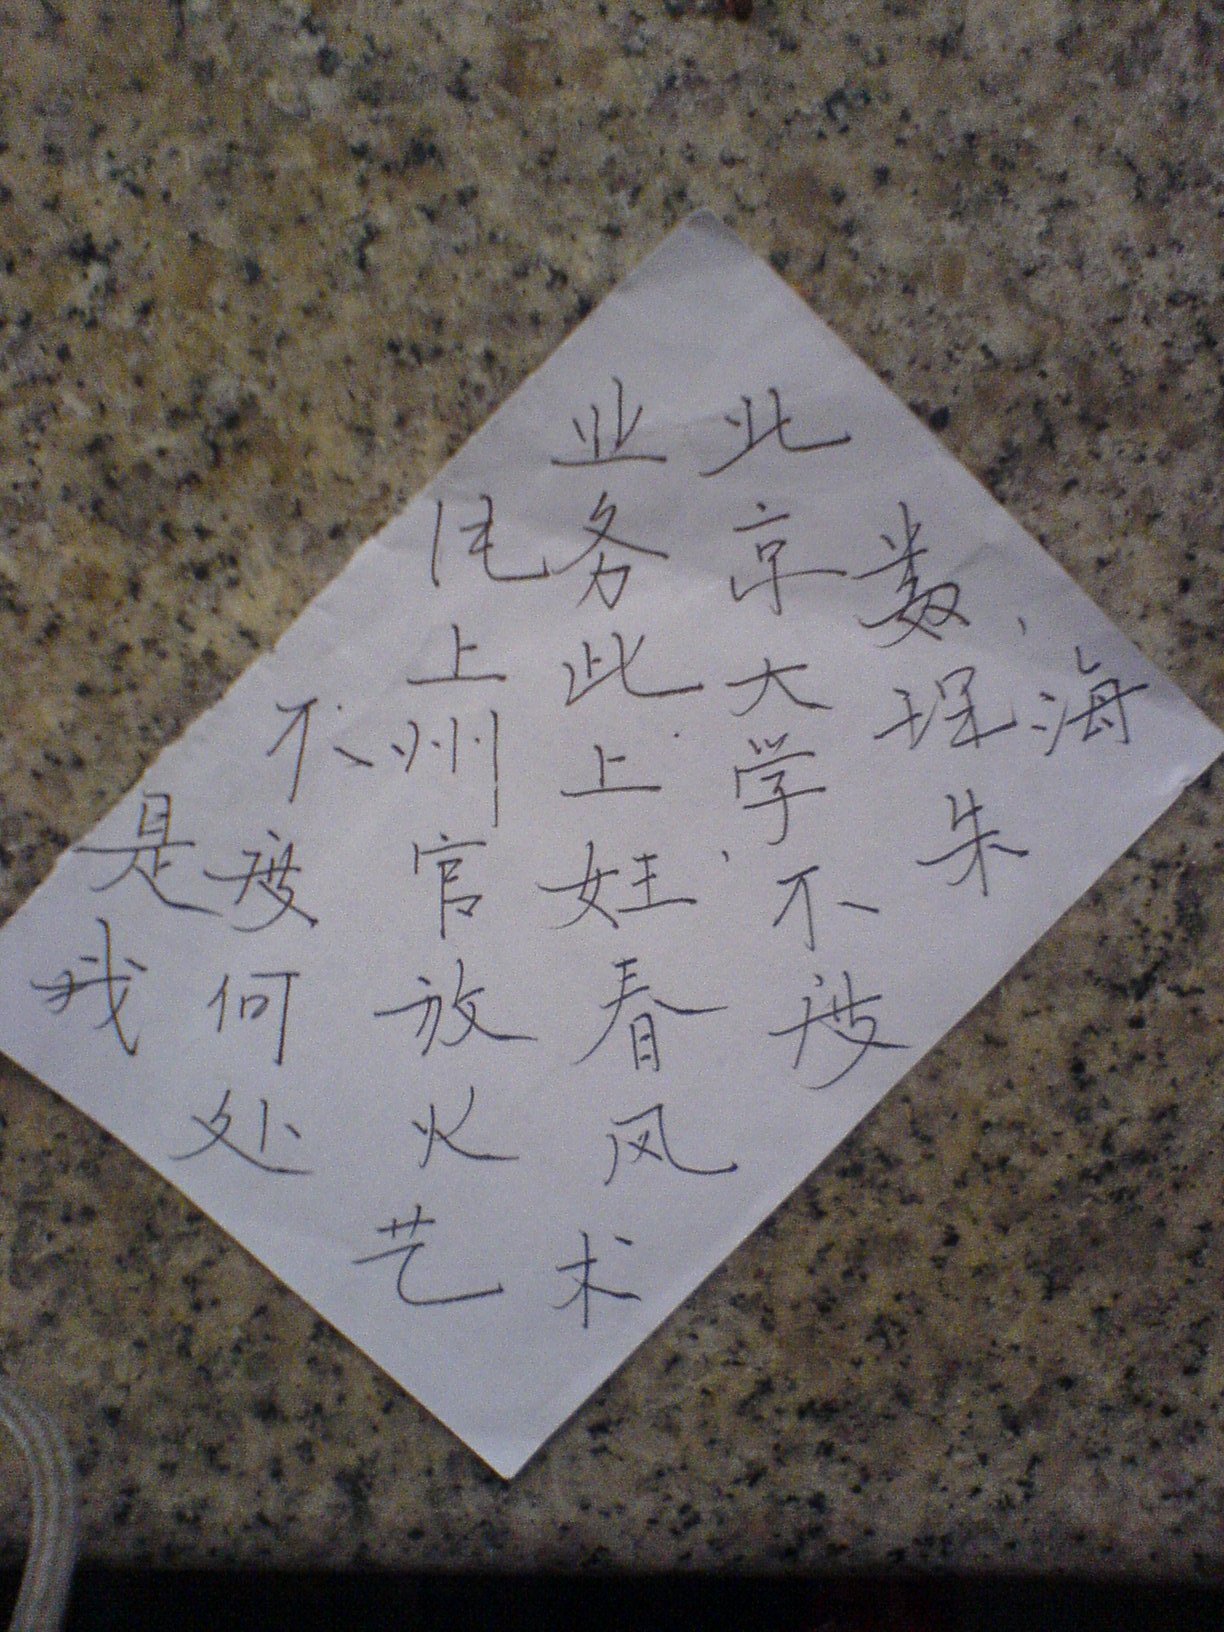 海
数朱
北京大学不度
业务此上妊春风术
上州官放火艺
不度何处
是我